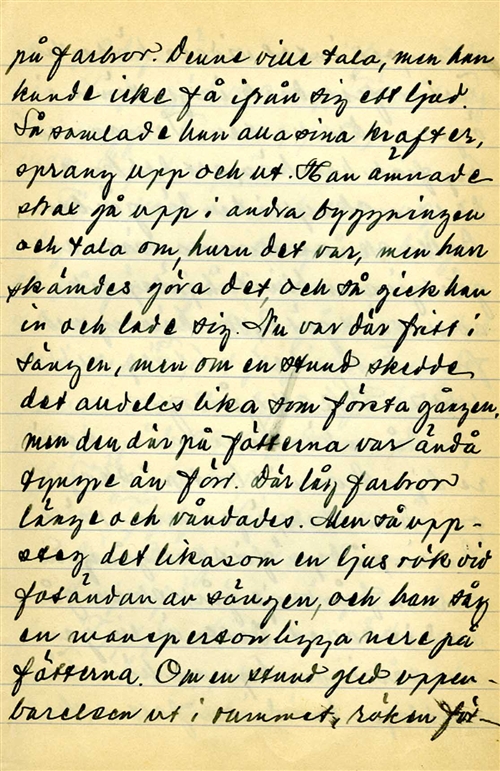 på farbror. Denne ville tala, men han
kunde icke få ifrån sig ett ljud.
Så samlade han alla sina krafter,
sprang upp och ut. Han ämnade
strax gå upp i andra byggningen
och tala om, huru det var, men han
skämdes göra det, och så gick han
in och lade sig. Nu var där fritt i
sängen, men om en stund skedde
det alldeles lika som första gången,
men den där på fötterna var ändå
tyngre än förr. Där låg farbror
länge och våndades. Men så upp-
steg det likasom en ljus rök vid
fotändan av sängen, och han såg
en mansperson ligga nere på
fötterna. Om en stund gled uppen-
barelsen ut i rummet, röken för-